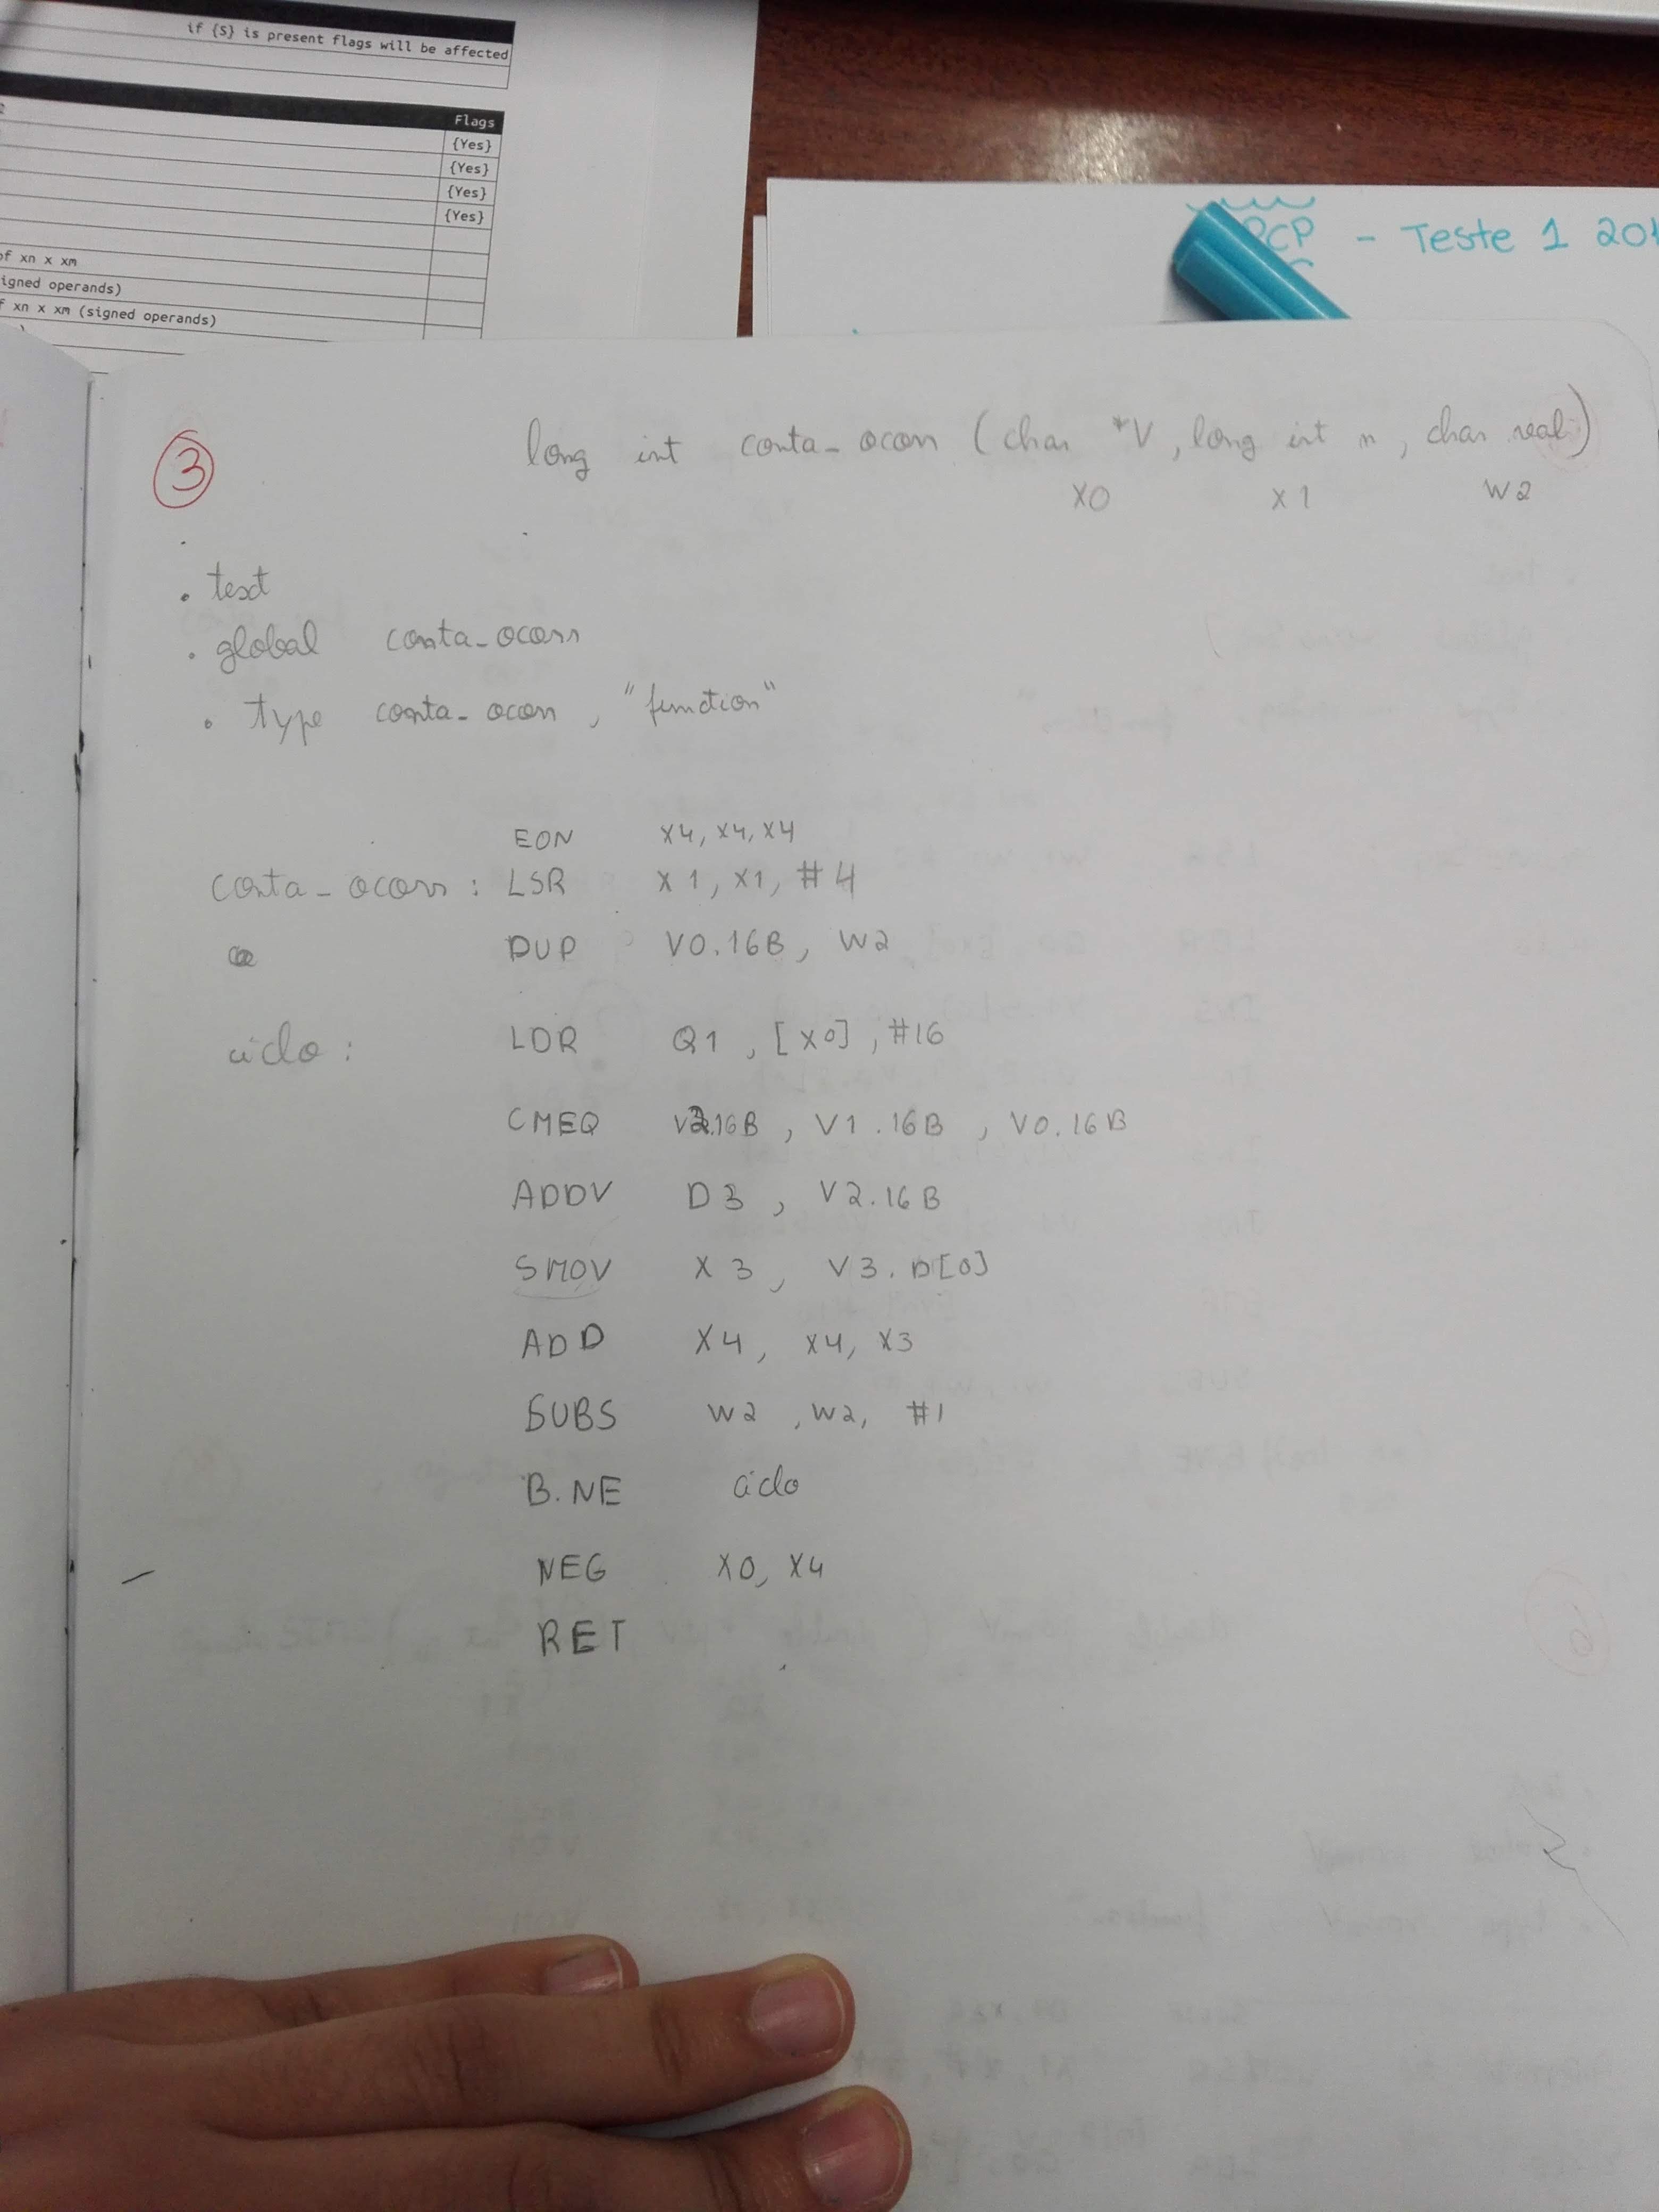 if {S} is present flags will be affected
Flags
{Yes}
{Yes}
{Yes}
{Yes}
of xn x xm
igned operands)
f xn x xm (signed operands)
PCP - Teste 1 201
3
long int conta-ocorr (char *V, long int n, char val)
X0 X1 W2
.text
.global conta-ocorr
.type conta-ocorr, "function"
EON X4, X4, X4
conta-ocorr: LSR X1, X1, #4
DUP V0.16B, W2
ciclo: LDR Q1, [X0], #16
CMEQ V2.16B, V1.16B, V0.16B
ADDV D3, V2.16B
SMOV X3, V3.D[0]
ADD X4, X4, X3
SUBS W2, W2, #1
B.NE ciclo
NEG X0, X4
RET